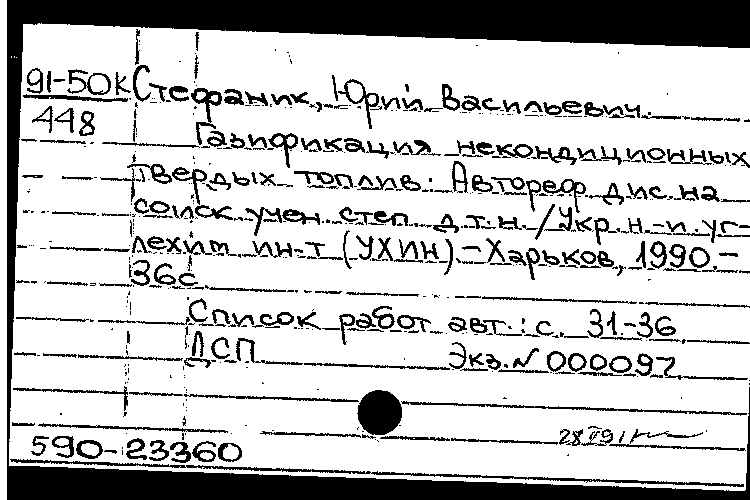 91-50К Стефаник, Юрий Васильевич.
448 Газификация некондиционных
твердых топлив: Автореф. дис. на
соиск. учен. степ. д.т.н. / Укр. н.-и. уг-
лехим. ин-т (УХИН). - Харьков, 1990. -
36с.
Список работ авт.: с. 31-36.
ДСП Экз. N 000097.
28
590-23360